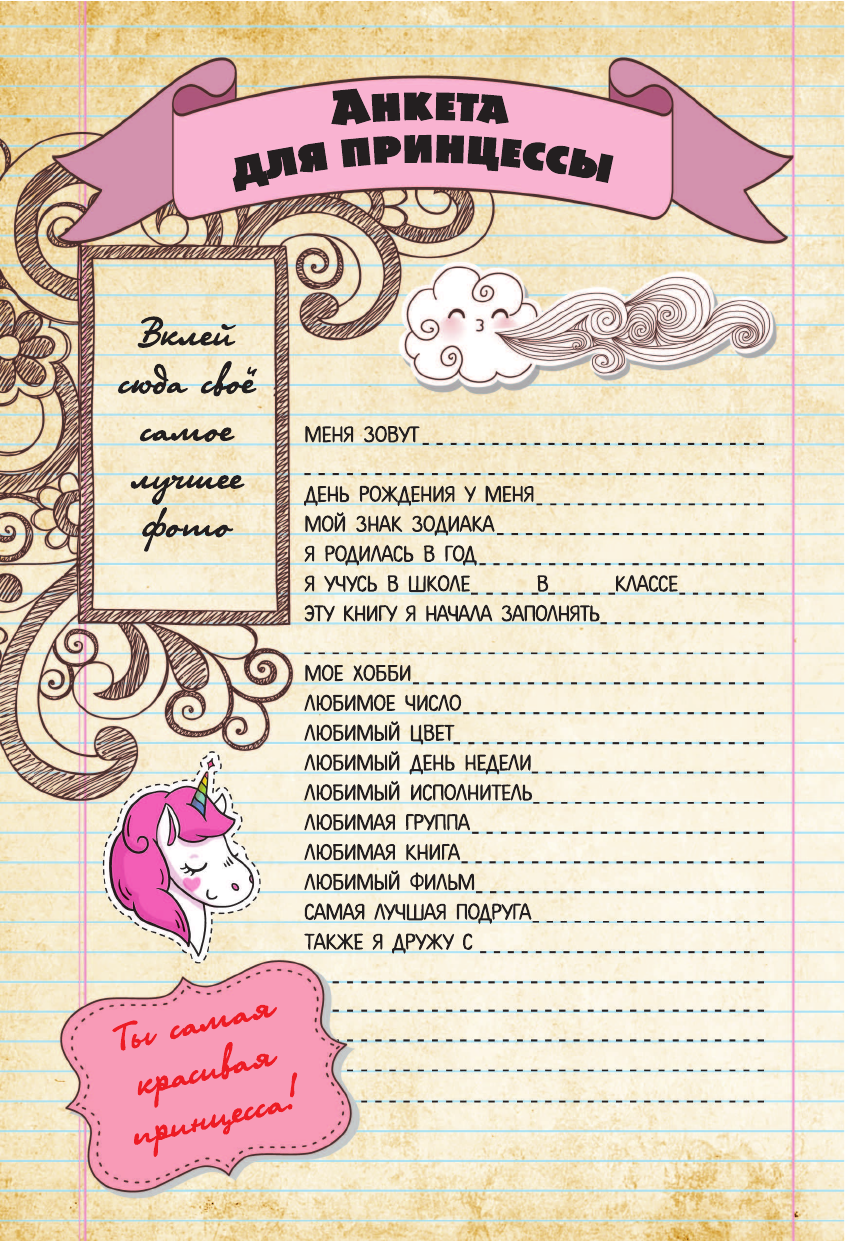 Анкета
для принцессы
Вклей
сюда своё
самое
лучшее
фото
МЕНЯ ЗОВУТ
ДЕНЬ РОЖДЕНИЯ У МЕНЯ
МОЙ ЗНАК ЗОДИАКА
Я РОДИЛАСЬ В ГОД
Я УЧУСЬ В ШКОЛЕ В КЛАССЕ
ЭТУ КНИГУ Я НАЧАЛА ЗАПОЛНЯТЬ
МОЕ ХОББИ
ЛЮБИМОЕ ЧИСЛО
ЛЮБИМЫЙ ЦВЕТ
ЛЮБИМЫЙ ДЕНЬ НЕДЕЛИ
ЛЮБИМЫЙ ИСПОЛНИТЕЛЬ
ЛЮБИМАЯ ГРУППА
ЛЮБИМАЯ КНИГА
ЛЮБИМЫЙ ФИЛЬМ
САМАЯ ЛУЧШАЯ ПОДРУГА
ТАКЖЕ Я ДРУЖУ С
Ты самая
красивая
принцесса!